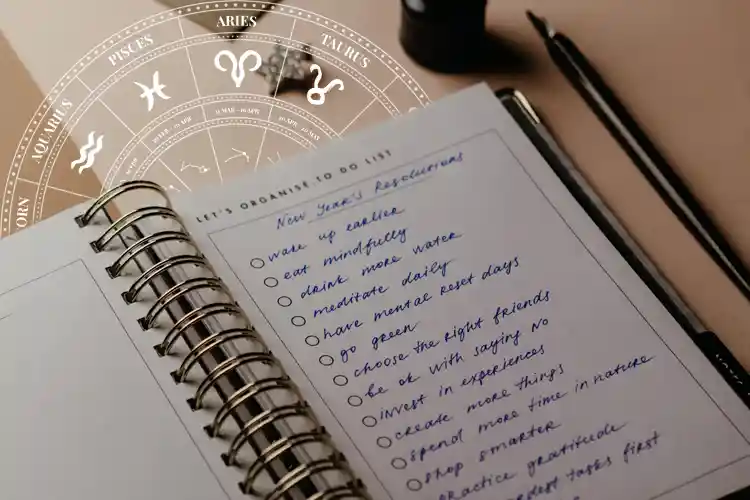 ARIES
PISCES
TAURUS
AQUARIUS
ORN
LET'S ORGANISE, TO DO LIST
New Year's Resolutions
wake up earlier
eat mindfully
drink more water
meditate daily
have mental reset days
go green
choose the right friends
be ok with saying no
invest in experiences
create more things
spend more time in nature
shop smarter
practice gratitude
tasks first